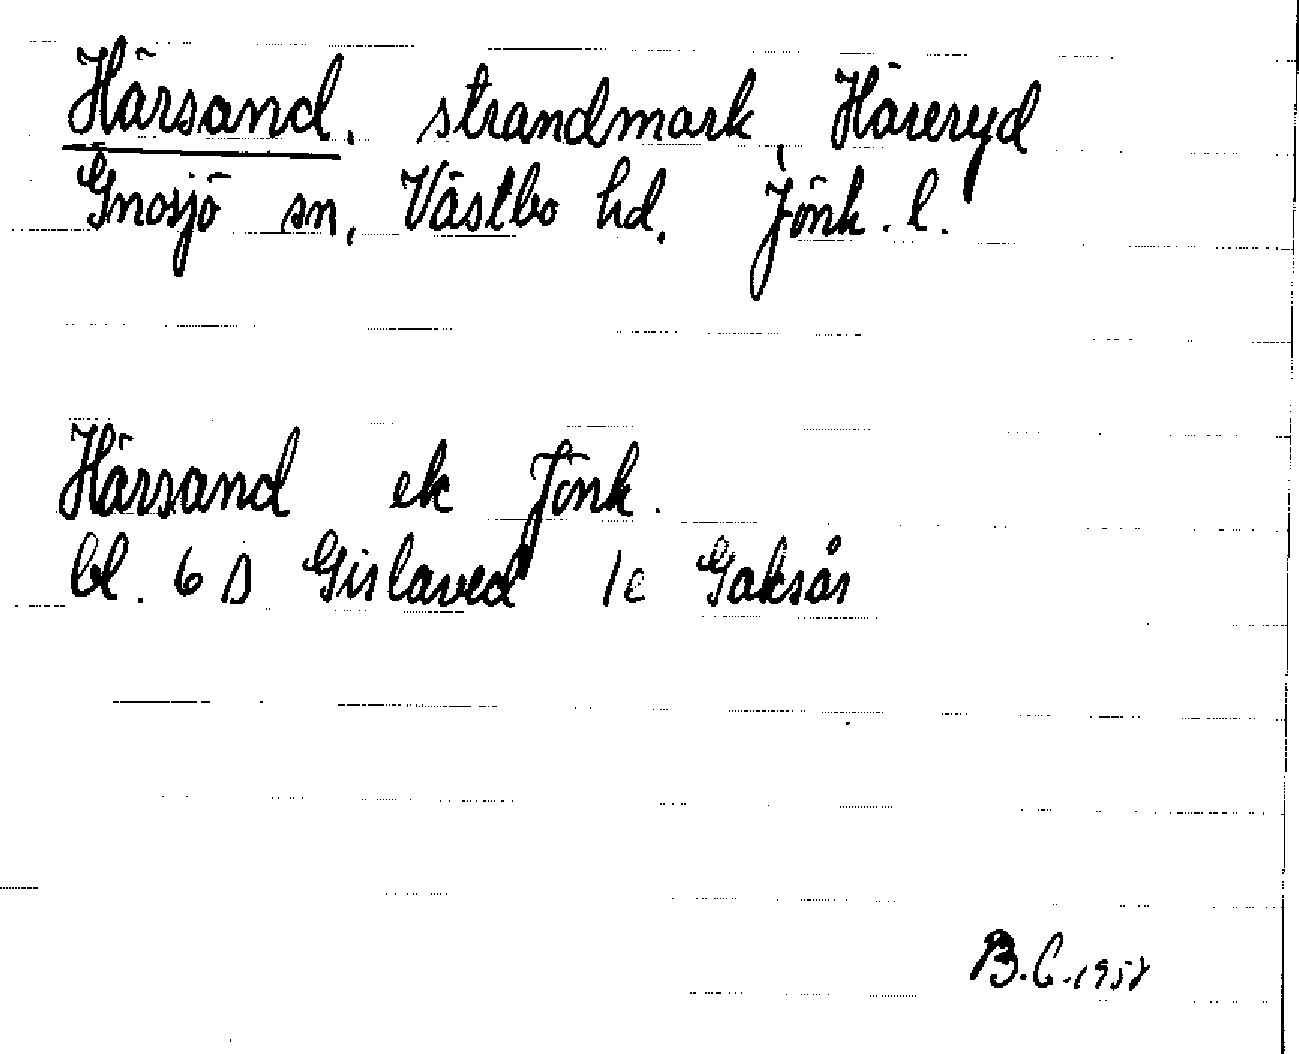 Härsand, strandmark, Häreryd
Gnosjö sn, Västbo hd. Jönk. l.
Härsand ek Jönk.
bl. 6 D Gislaved 1e Gaksås
B.C. 1958